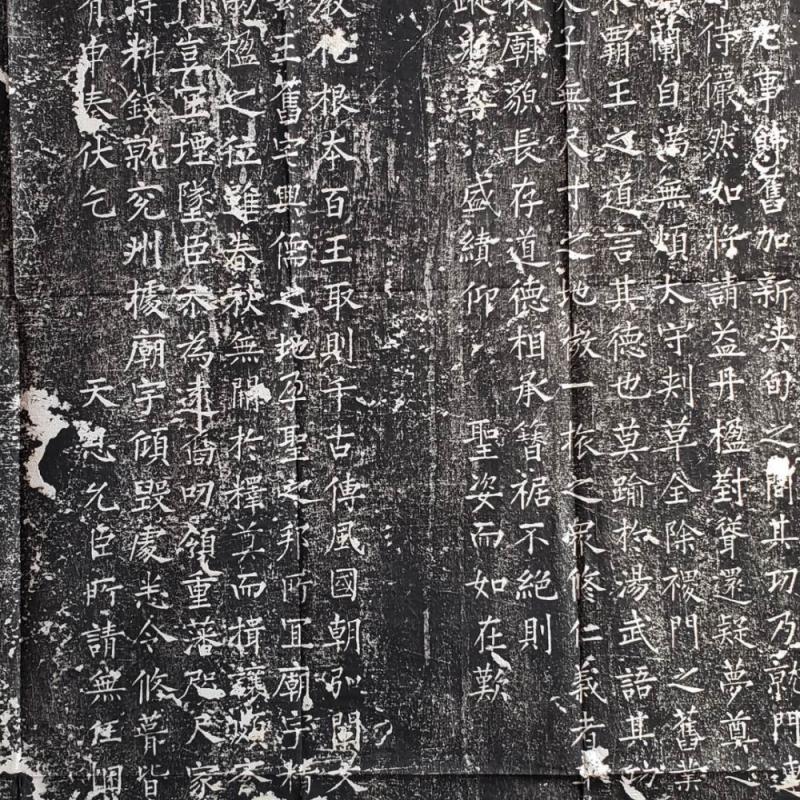 事餝舊加新浹旬之間其功乃就門達
侍儼然如將請益丹楹對聳還疑夢奠之
蘭自滿無煩太守刾草全除禝門之舊業
霸王之道言其德也莫踰於湯武語其功
天子無尺寸之地微一旅之眾修仁義者
廟貌長存道德相承簪裾不絕則
盛緒仰 聖姿而如在歎
教化根本百王取則千古傳風國朝別闢文
王舊宅興儒之地孕聖之邦所宜廟宇精
楹之位雖春秋無闕於釋奠而揖讓頗
宮王堙墜臣忝為遠裔叨領重藩咫尺家
料錢就兗州據廟宇傾毀處悉令修葺皆
有申奏伏乞 天恩允臣所請無任悃